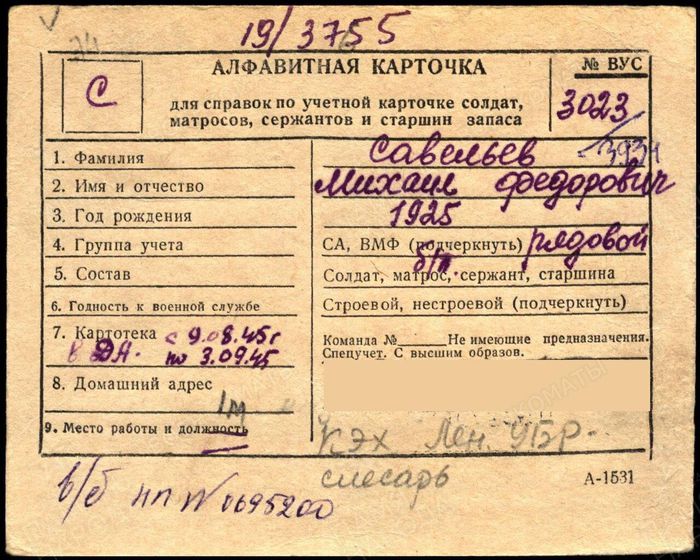 19/3755
С
АЛФАВИТНАЯ КАРТОЧКА
для справок по учетной карточке солдат,
матросов, сержантов и старшин запаса
№ ВУС
3023
1. Фамилия Савельев
2. Имя и отчество Михаил Федорович
3. Год рождения 1925
4. Группа учета СА, ВМФ (подчеркнуть) рядовой
5. Состав Солдат, матрос, сержант, старшина
б/п.
6. Годность к военной службе Строевой, нестроевой (подчеркнуть)
7. Картотека с 9.08.45г
в ДА. по 3.09.45
Команда № Не имеющие предназначения.
Спецучет. С высшим образов.
8. Домашний адрес
9. Место работы и должность КЭХ Лен УБР-
слесарь
А-1531
в/б НП №0695200